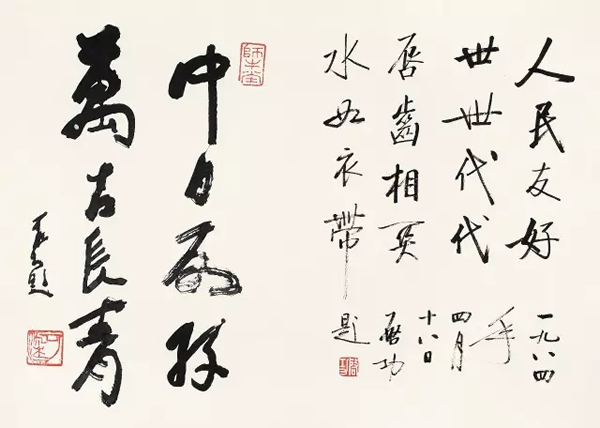 人民友好
世世代代
唇齒相关
水如衣帶
一九八四
年
四月
十八日
啟功
題
師牛堂
中日友好
萬古長青
可染題